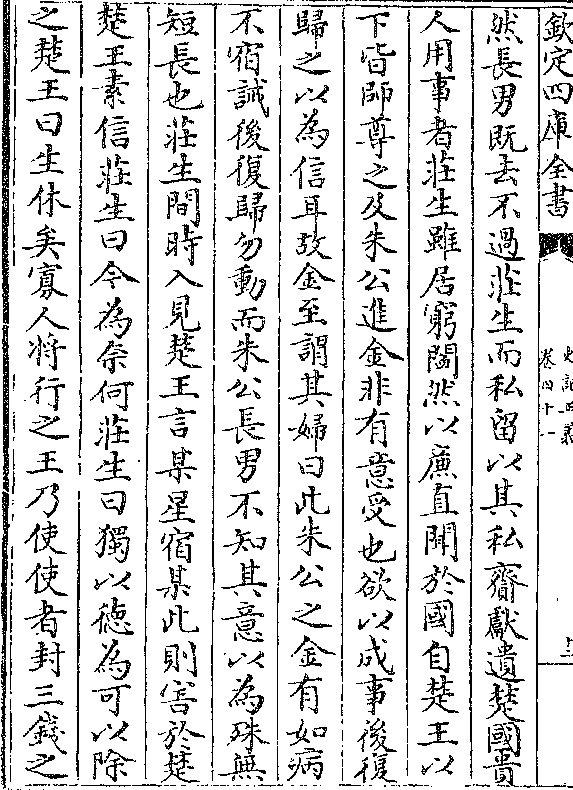 欽定四庫全書
史記正義
卷四十一
然長男既去不過莊生而私留以其私齎獻遺楚國貴
人用事者莊生雖居窮閻然以廉直聞於國自楚王以
下皆師尊之及朱公進金非有意受也欲以成事後復
歸之以為信耳故金至謂其婦曰此朱公之金有如病
不宿誡後復歸勿動而朱公長男不知其意以為殊無
短長也莊生間時入見楚王言某星宿某此則害於楚
楚王素信莊生曰今為奈何莊生曰獨以德為可以除
之楚王曰生休矣寡人將行之王乃使使者封三錢之